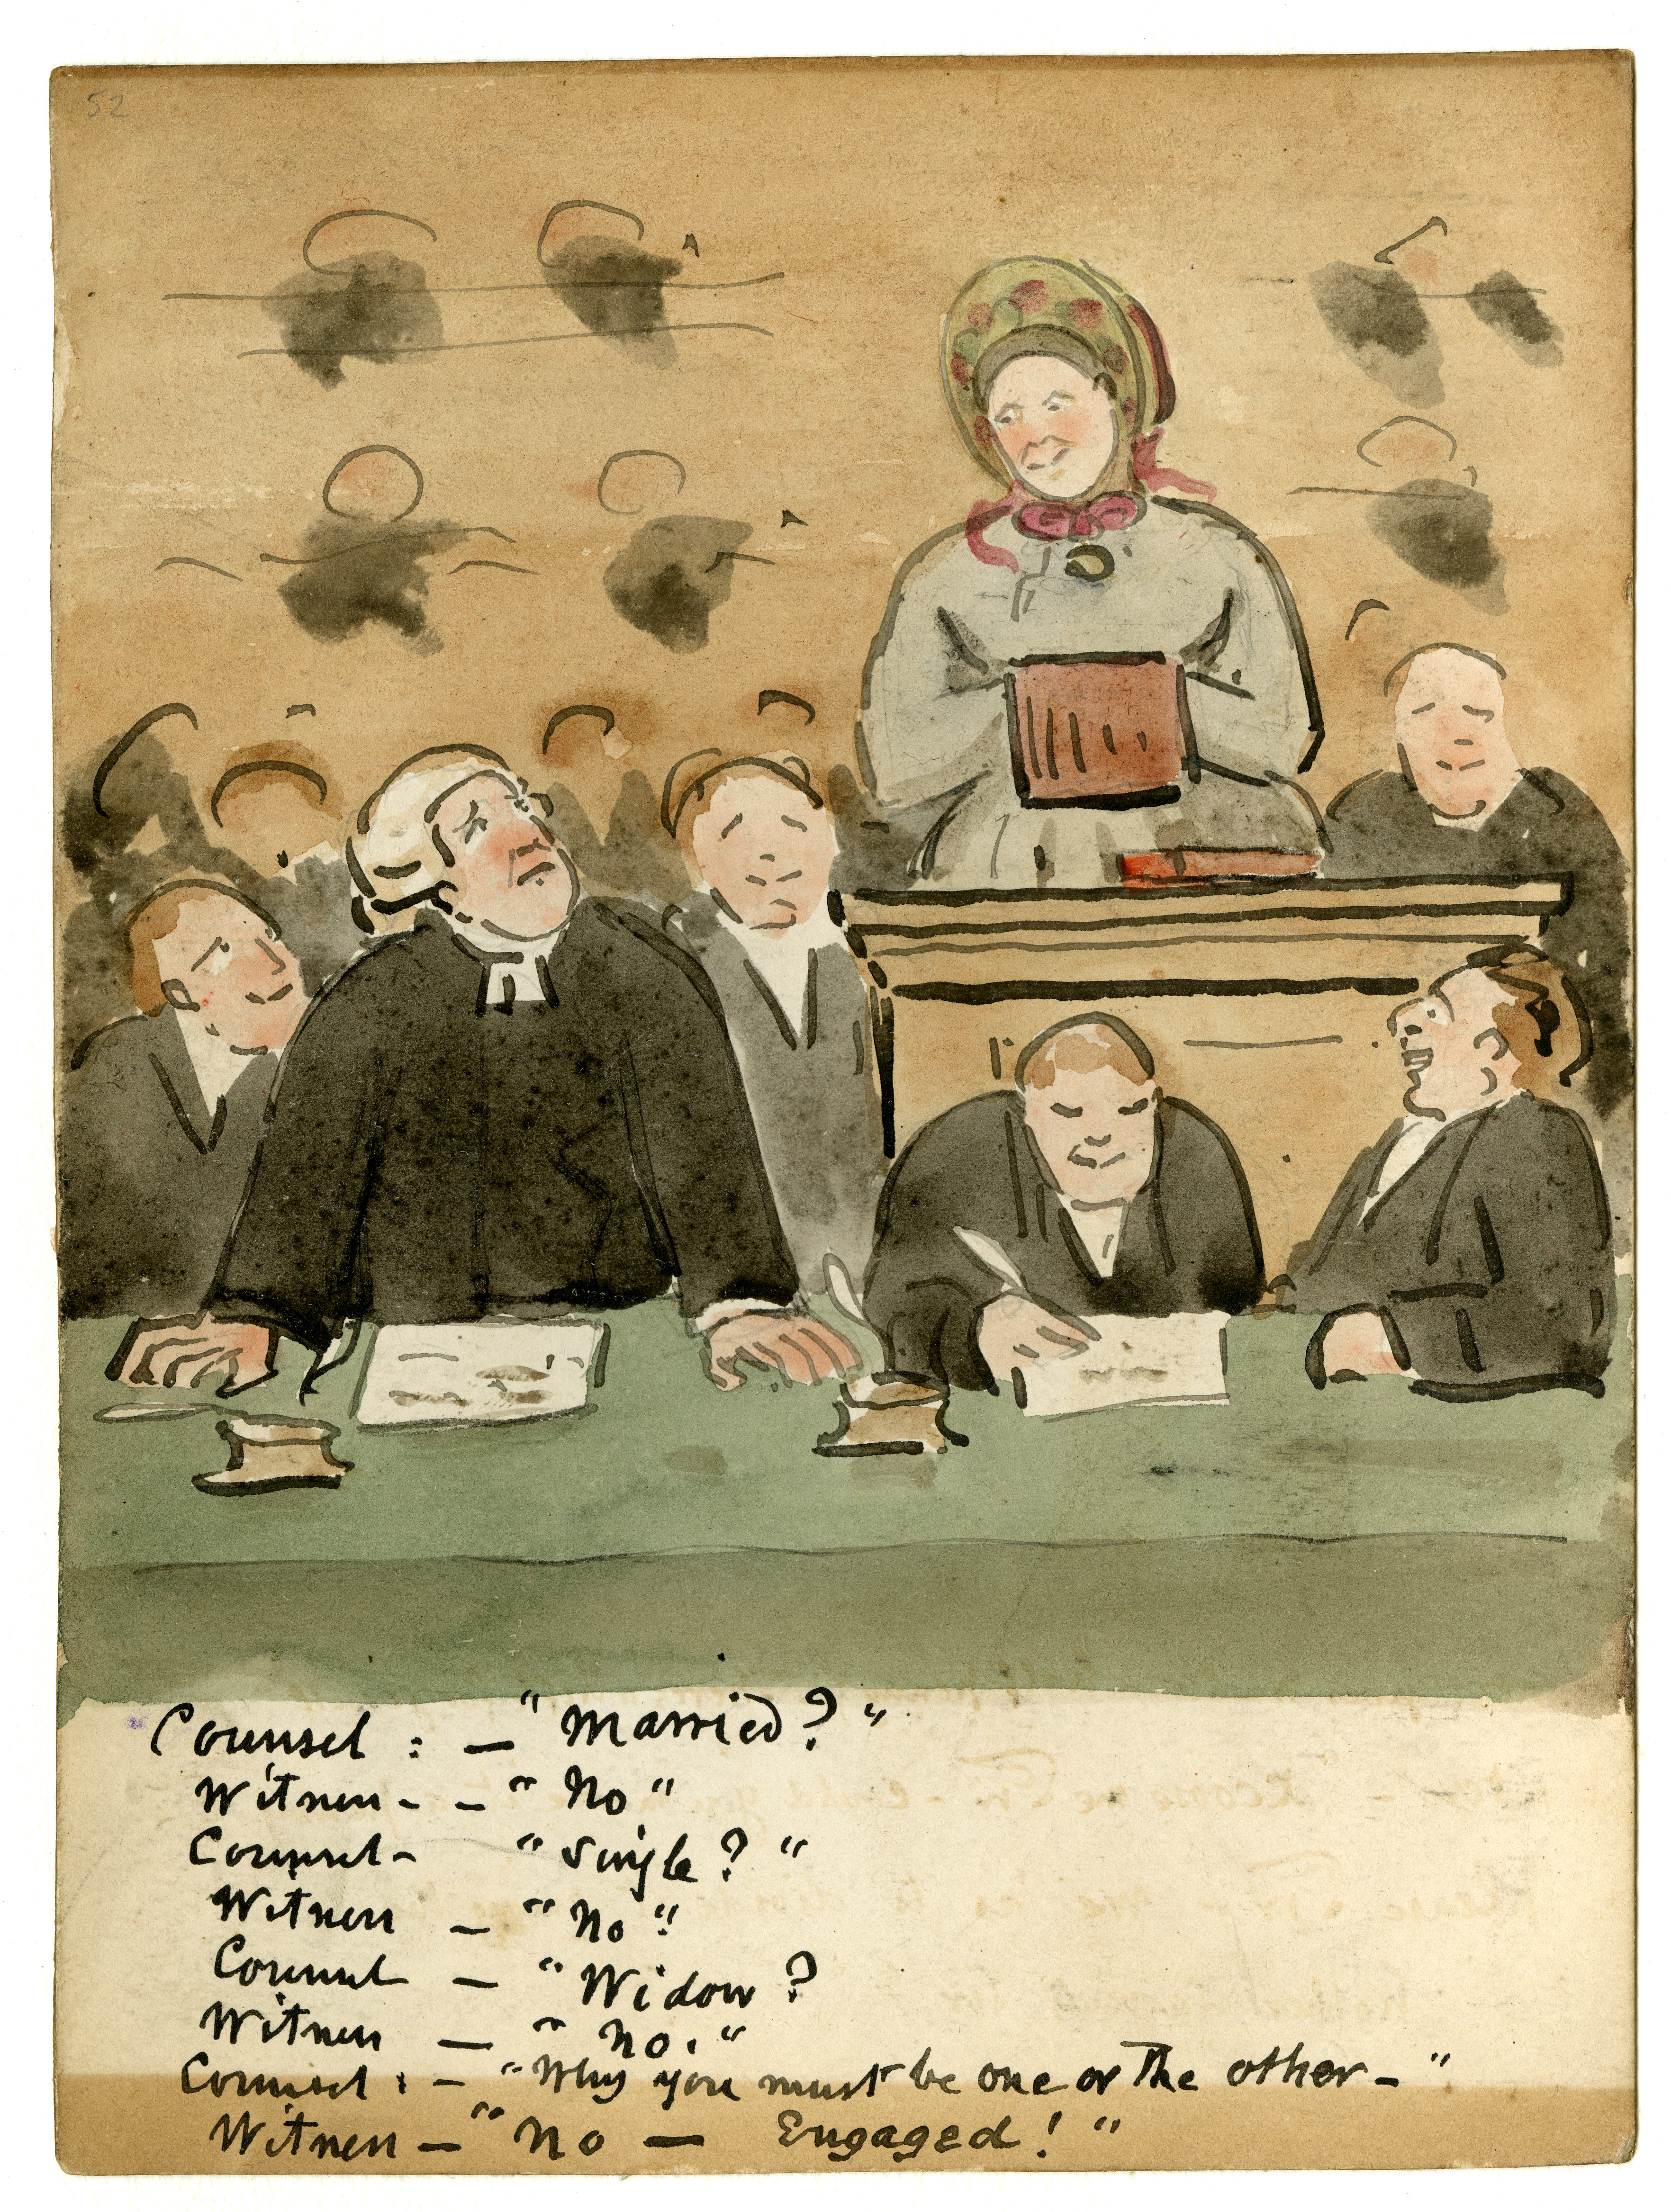 52
Counsel : — "Married ? "
Witness - - " No "
Counsel - " Single ? "
Witness — " No "
Counsel — " Widow ?
Witness — " No. "
Counsel : — " Why you must be one or the other — "
Witness — " No — Engaged ! "